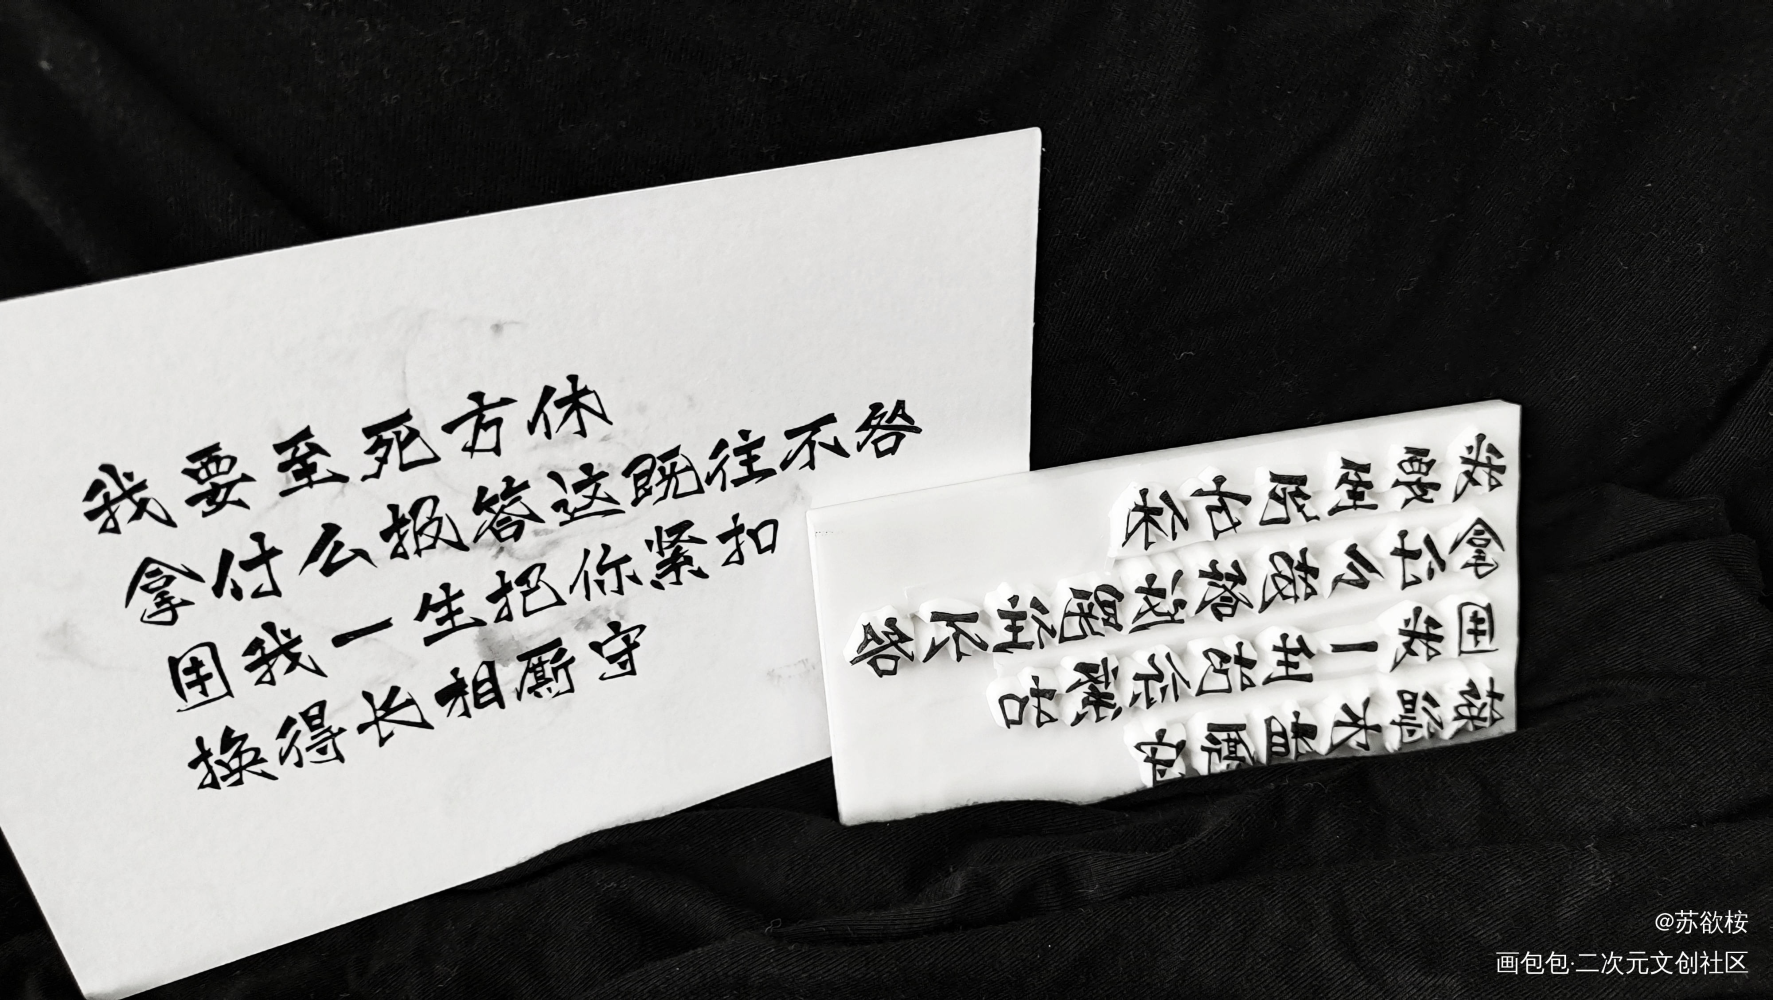 我要至死方休
拿什么报答这既往不咎
用我一生把你紧扣
换得长相厮守
我要至死方休
拿什么报答这既往不咎
用我一生把你紧扣
换得长相厮守
@苏欲桉
画包包·二次元文创社区